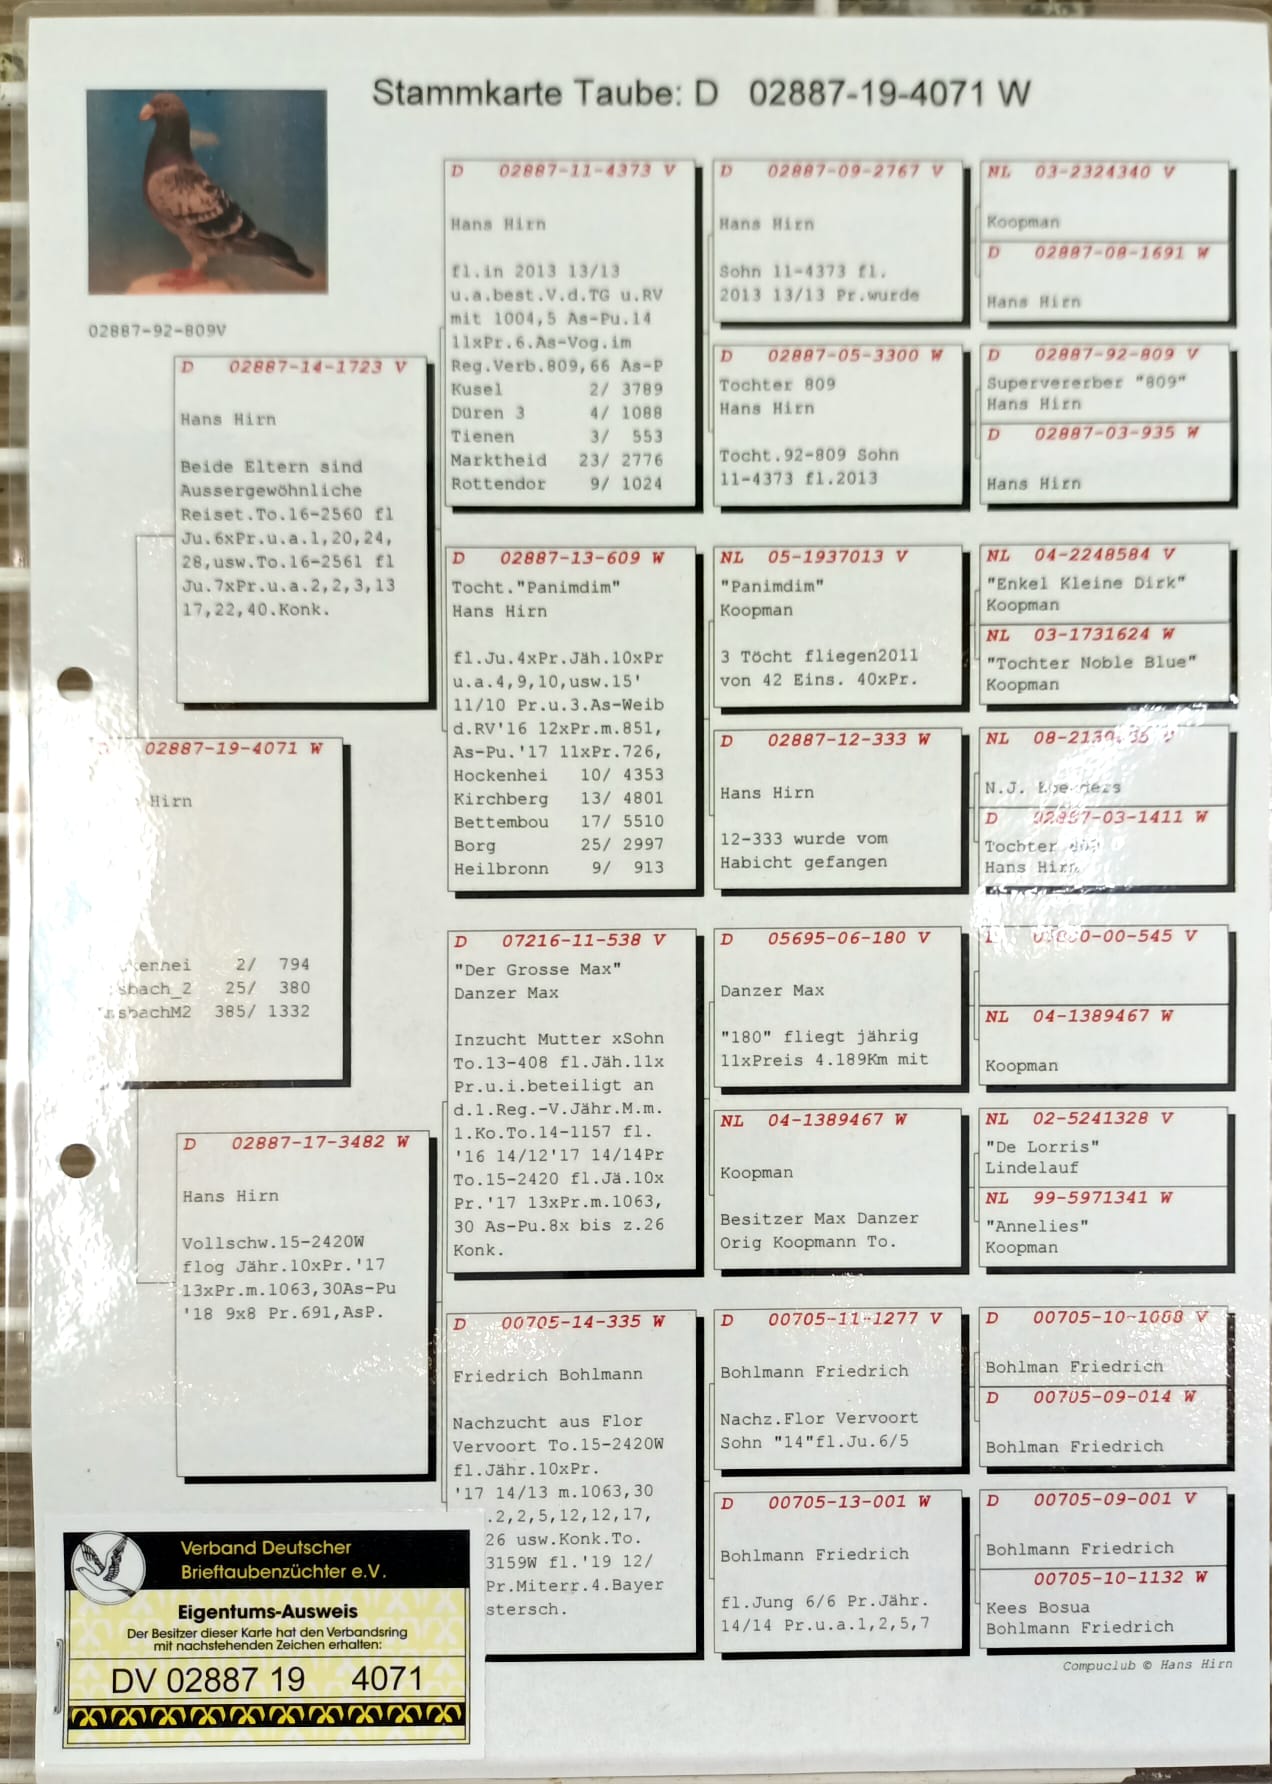 Stammkarte Taube: D 02887-19-4071 W
02887-92-809V
D 02887-14-1723 V
Hans Hirn
Beide Eltern sind
Aussergewöhnliche
Reiset.To.16-2560 fl
Ju.6xPr.u.a.1,20,24,
28,usw.To.16-2561 fl
Ju.7xPr.u.a.2,2,3,13
17,22,40.Konk.
02887-19-4071 W
Hirn
2/ 794
25/ 380
385/ 1332
D 02887-17-3482 W
Hans Hirn
Vollschw.15-2420W
flog Jähr.10xPr.'17
13xPr.m.1063,30As-Pu
'18 9x8 Pr.691,AsP.
D 02887-11-4373 V
Hans Hirn
fl.in 2013 13/13
u.a.best.V.d.TG u.RV
mit 1004,5 As-Pu.14
11xPr.6.As-Vog.im
Reg.Verb.809,66 As-P
Kusel 2/ 3789
Düren 3 4/ 1088
Tienen 3/ 553
Marktheid 23/ 2776
Rottendor 9/ 1024
D 02887-13-609 W
Tocht."Panimdim"
Hans Hirn
fl.Ju.4xPr.Jäh.10xPr
u.a.4,9,10,usw.15'
11/10 Pr.u.3.As-Weib
d.RV'16 12xPr.m.851,
As-Pu.'17 11xPr.726,
Hockenhei 10/ 4353
Kirchberg 13/ 4801
Bettembou 17/ 5510
Borg 25/ 2997
Heilbronn 9/ 913
D 07216-11-538 V
"Der Grosse Max"
Danzer Max
Inzucht Mutter xSohn
To.13-408 fl.Jäh.11x
Pr.u.i.beteiligt an
d.1.Reg.-V.Jähr.M.m.
1.Ko.To.14-1157 fl.
'16 14/12'17 14/14Pr
To.15-2420 fl.Jä.10x
Pr.'17 13xPr.m.1063,
30 As-Pu.8x bis z.26
Konk.
D 00705-14-335 W
Friedrich Bohlmann
Nachzucht aus Flor
Vervoort To.15-2420W
fl.Jähr.10xPr.
'17 14/13 m.1063,30
.2,2,5,12,12,17,
26 usw.Konk.To.
3159W fl.'19 12/
Pr.Miterr.4.Bayer
stersch.
D 02887-09-2767 V
Hans Hirn
Sohn 11-4373 fl.
2013 13/13 Pr.wurde
D 02887-05-3300 W
Tochter 809
Hans Hirn
Tocht.92-809 Sohn
11-4373 fl.2013
NL 05-1937013 V
"Panimdim"
Koopman
3 Töcht fliegen2011
von 42 Eins. 40xPr.
D 02887-12-333 W
Hans Hirn
12-333 wurde vom
Habicht gefangen
D 05695-06-180 V
Danzer Max
"180" fliegt jährig
11xPreis 4.189Km mit
NL 04-1389467 W
Koopman
Besitzer Max Danzer
Orig Koopmann To.
D 00705-11-1277 V
Bohlmann Friedrich
Nachz.Flor Vervoort
Sohn "14"fl.Ju.6/5
D 00705-13-001 W
Bohlmann Friedrich
fl.Jung 6/6 Pr.Jähr.
14/14 Pr.u.a.1,2,5,7
NL 03-2324340 V
Koopman
D 02887-08-1691 W
Hans Hirn
D 02887-92-809 V
Supervererber "809"
Hans Hirn
D 02887-03-935 W
Hans Hirn
NL 04-2248584 V
"Enkel Kleine Dirk"
Koopman
NL 03-1731624 W
"Tochter Noble Blue"
Koopman
NL
N.J.
D 02887-03-1411 W
Tochter
Hans Hirn
V
NL 04-1389467 W
Koopman
NL 02-5241328 V
"De Lorris"
Lindelauf
NL 99-5971341 W
"Annelies"
Koopman
D 00705-10-1088 V
Bohlman Friedrich
D 00705-09-014 W
Bohlman Friedrich
D 00705-09-001 V
Bohlmann Friedrich
00705-10-1132 W
Kees Bosua
Bohlmann Friedrich
Compuclub © Hans Hirn
Verband Deutscher
Brieftaubenzüchter e.V.
Eigentums-Ausweis
Der Besitzer dieser Karte hat den Verbandsring
mit nachstehenden Zeichen erhalten:
DV 02887 19 4071